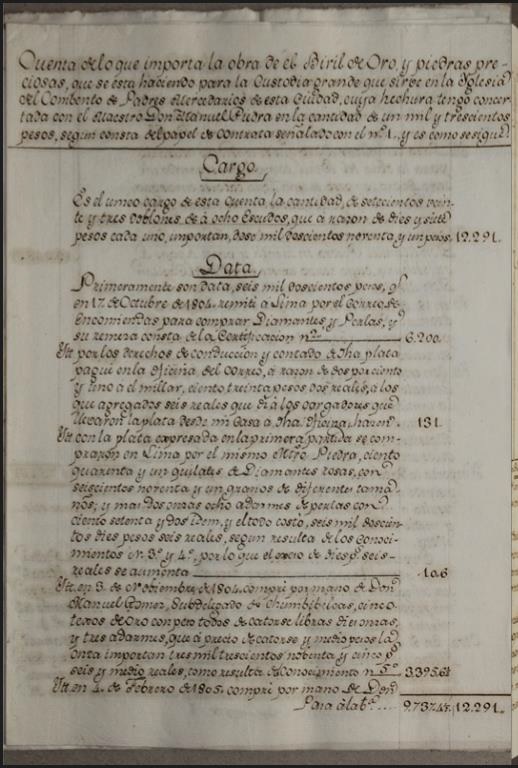 Quenta de lo que importa la obra de el Biril de Oro, y piedras pre-
ciosas, que se está haciendo para la Custodia grande que sirve en la Yglesia
del Combento de Padres Mercedarios de esta Ciudad, cuija hechura tengo concer-
tada con el Maestro Don Manuel Piedra en la cantidad de un mil y trescientos
pesos, segun consta del papel de contrata señalado con el nº 1. y es como se sigue
Cargo
Es el unico cargo de esta Quenta la cantidad, de setecientos vein-
te y tres doblones, de à ocho Escudos, que à razon de dies y siete
pesos cada uno, importan, dose mil doscientos noventa y un pesos. 12.291.
Data
Primeramente son data, seis mil doscientos pesos, q.e
en 17. de Octubre de 1804. remití à Lima por el Correo de
Encomiendas para comprar Diamantes y Perlas, y
su remesa consta de la Certificacion nº 6.200.
Ytt. por los derechos de conduccion y contado de dha. plata
pagué en la oficina del Correo, à razon de dos por ciento
y uno à el millar, ciento treinta pesos dos reales, à los
que agregados seis reales que dí à los cargadores que
llevaron la plata desde mi Casa a dha. oficina, hacen 131.
Ytt. con la plata expresada en la primera partida se com-
praron en Lima por el mismo Mtro. Piedra, ciento
quarenta y un quilates de Diamantes rosas, con
seiscientos noventa y un granos de diferentes tama-
ños; y mas dos onzas ocho adarmes de perlas con
ciento setenta y dos Idem, y el todo costó, seis mil doscien-
tos dies pesos seis reales, segun resulta de los Conoci-
mientos N. 3º y 4º, por lo que el exceso de dies p.s seis
reales se aumenta 10.6
Ytt. en 3. de Noviembre de 1804. compré por mano de Don
Manuel Gomez, Subdelegado de Chumbibilcas, cinco
texos de Oro con pero todos de catorse libras dies onzas,
y tres adarmes, que à precio de catorse y medio pesos la
onza importan tres mil trescientos nobenta y cinco p.s
seis y medio reales, como resulta de Conocimiento nº 5º 3.395.6½
Ytt. en 4. de Febrero de 1805. compré por mano de Don
Para à la b.ta 9.737.4½. 12.291.